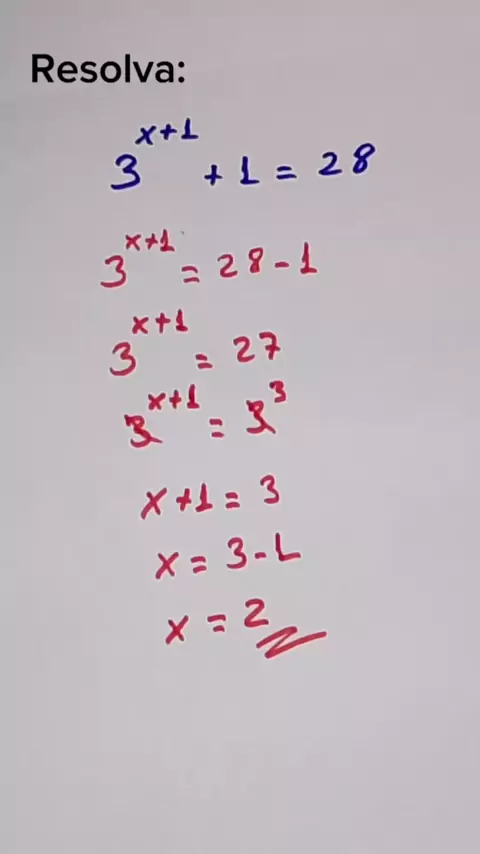 Resolva:
3^{x+1} + 1 = 28
3^{x+1} = 28 - 1
3^{x+1} = 27
3^{x+1} = 3^3
x + 1 = 3
x = 3 - 1
x = 2